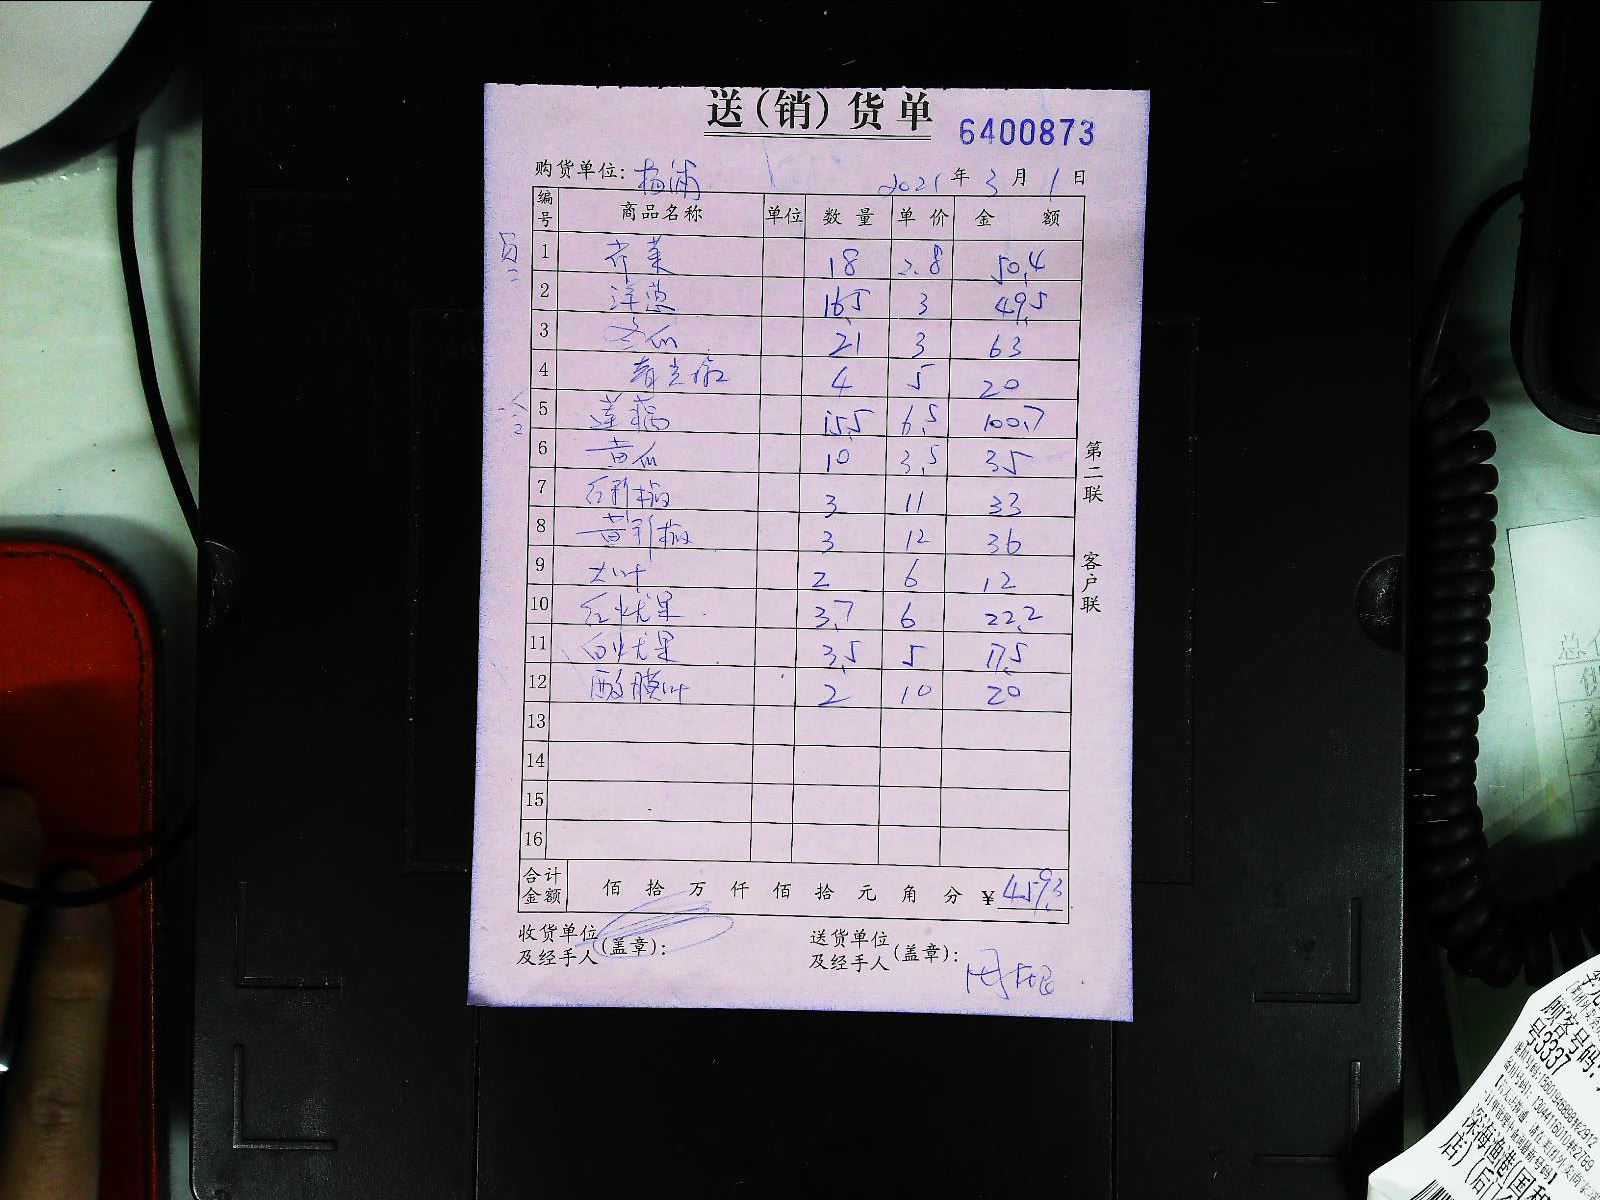 送(销)货单
6400873
购货单位: 杨浦 2021年3月1日
编号 商品名称 单位 数量 单价 金额
1 芹菜 18 2.8 50.4
2 洋葱 16.5 3 49.5
3 冬瓜 21 3 63
4 4 5 20
5 莲藕 15.5 6.5 100.7
6 黄瓜 10 3.5 35
7 红彩椒 3 11 33
8 黄彩椒 3 12 36
9 大叶 2 6 12
10 红火龙果 3.7 6 22.2
11 白火龙果 3.5 5 17.5
12 酸膜叶 2 10 20
13
14
15
16
合计金额 佰拾万仟佰拾元角分 ¥459.3
收货单位及经手人(盖章):
送货单位及经手人(盖章):
第二联 客户联
顾客号码:
号3337